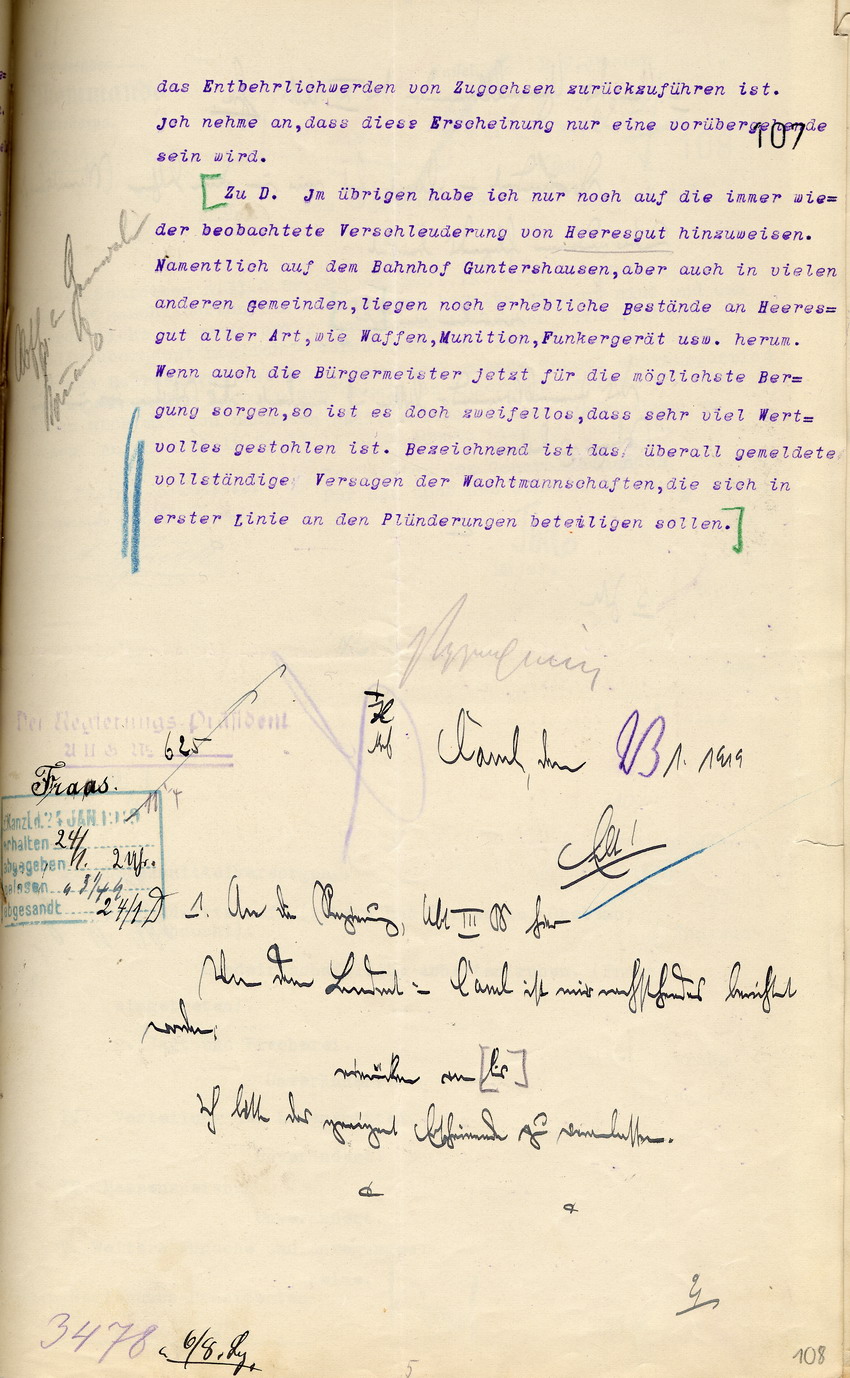 107
das Entbehrlichwerden von Zugochsen zurückzuführen ist.
Jch nehme an,dass diese Erscheinung nur eine vorübergehende
sein wird.
[Zu D. Jm übrigen habe ich nur noch auf die immer wie=
der beobachtete Verschleuderung von Heeresgut hinzuweisen.
Namentlich auf dem Bahnhof Guntershausen,aber auch in vielen
anderen Gemeinden,liegen noch erhebliche Bestände an Heeres=
gut aller Art,wie Waffen,Munition,Funkergerät usw. herum.
Wenn auch die Bürgermeister jetzt für die möglichste Ber=
gung sorgen,so ist es doch zweifellos,dass sehr viel Wert=
volles gestohlen ist. Bezeichnend ist das, überall gemeldete
vollständige Versagen der Wachtmannschaften,die sich in
erster Linie an den Plünderungen beteiligen sollen.]
Der Regierungs-Präsident
625
Cassel, den 23 1. 1919
Fraas.
Kanzl.d. 24 JAN. 1919
erhalten 24/1.
abgegeben 2 Uhr.
gelesen
abgesandt 24/1
1. An die Regierung, Abt III hier
Von dem Landrat = Cassel ist mir nachstehendes berichtet
worden:
einrücken von [bis]
Ich bitte das geeignet Erscheinende zu veranlassen.
3478
6/8.
5
108